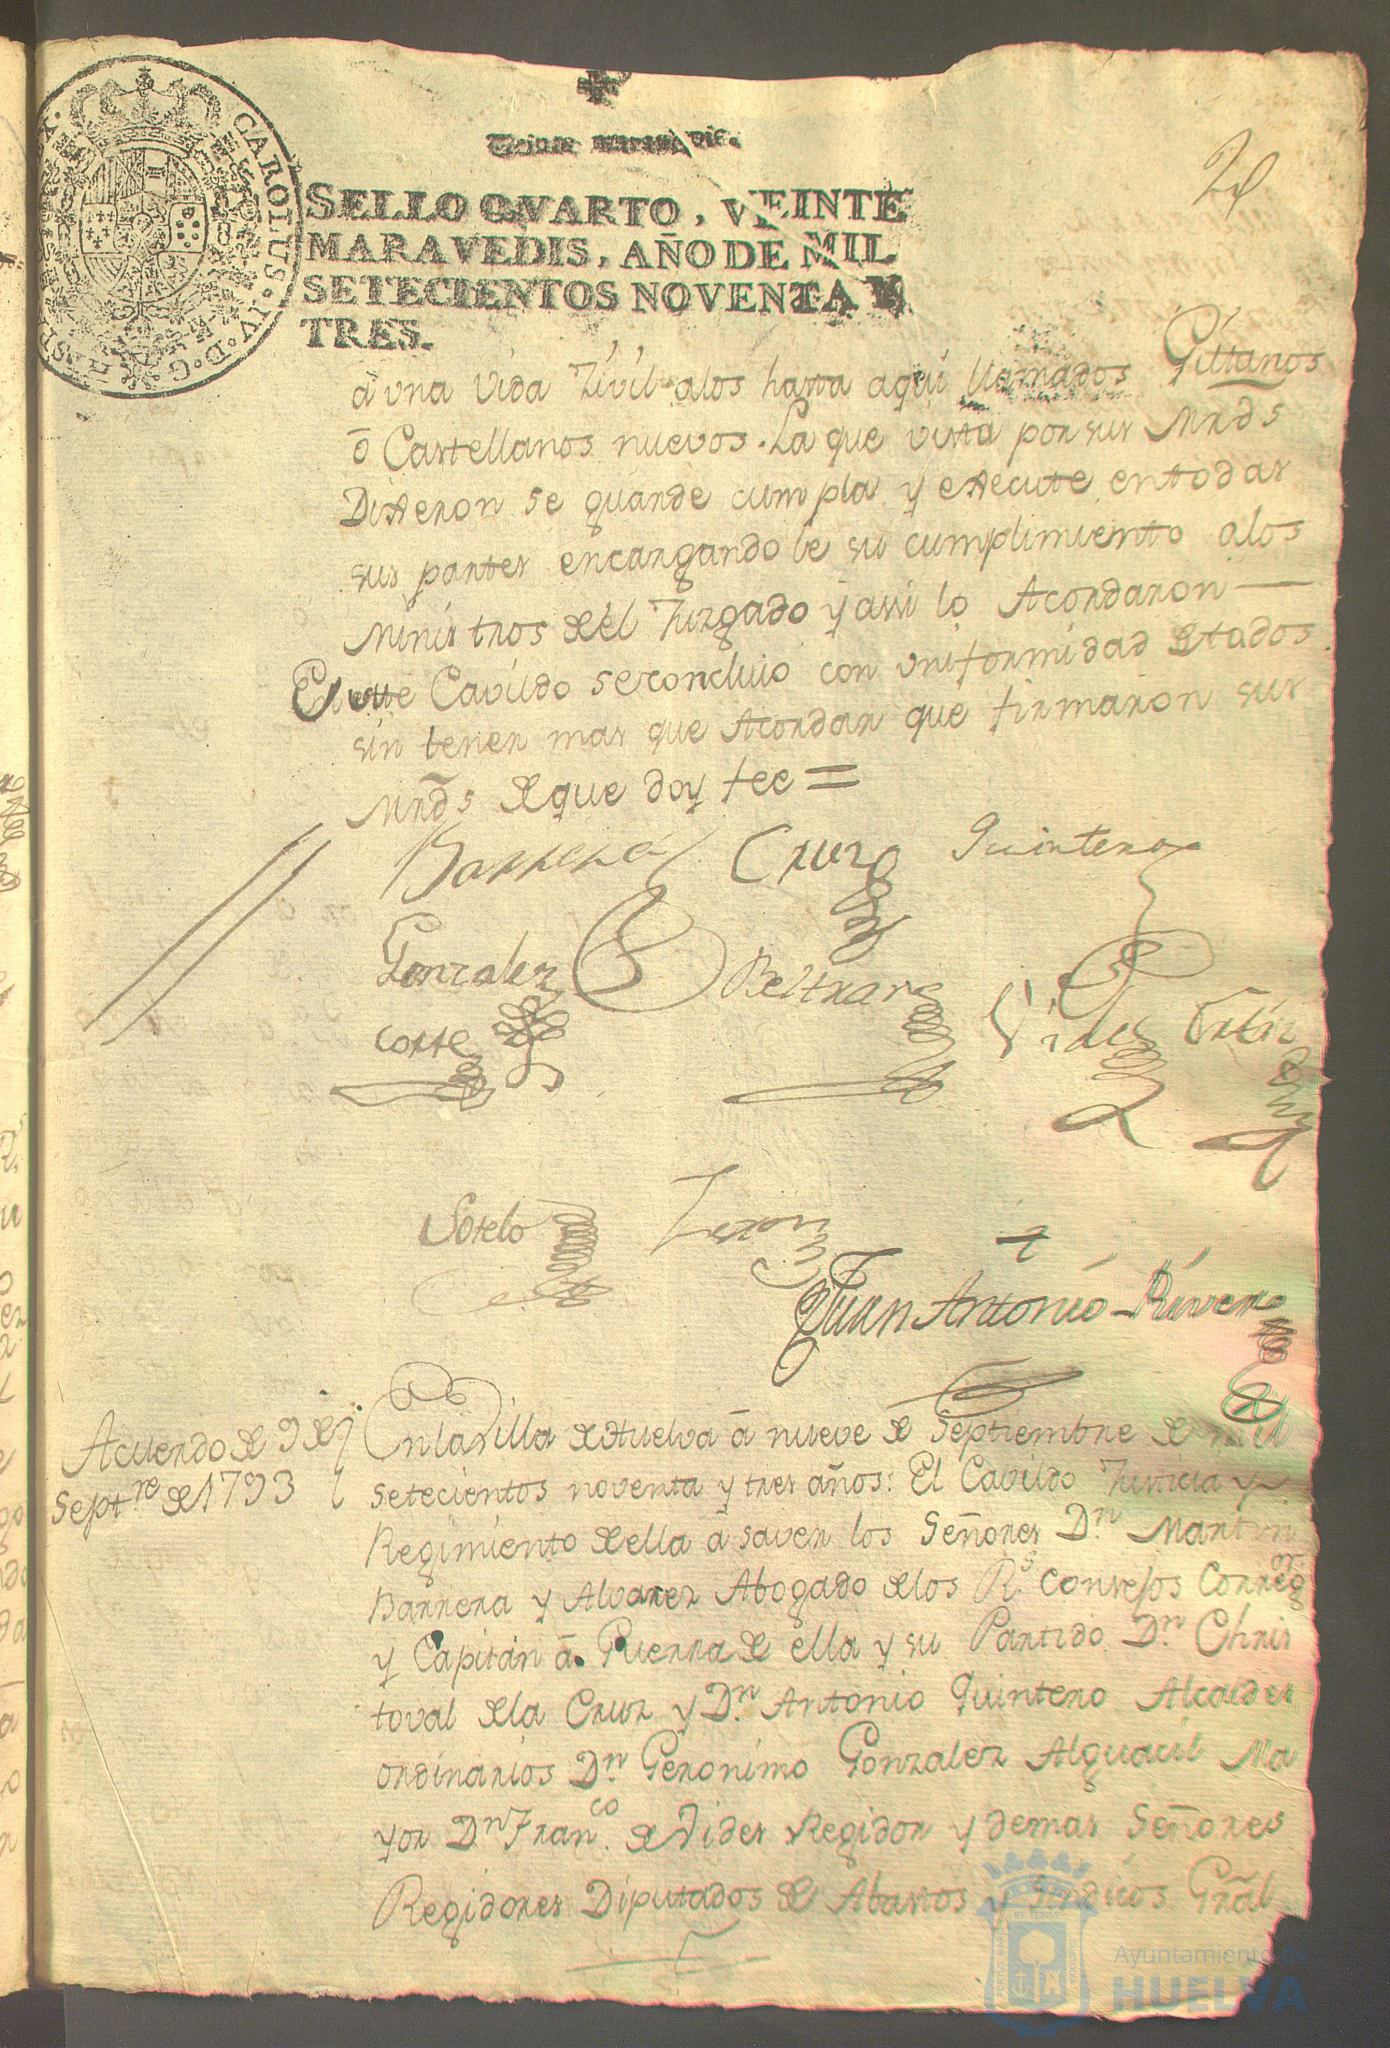 Veinte maravedis.
SELLO QVARTO, VEINTE
MARAVEDIS, AÑO DE MIL
SETECIENTOS NOVENTA Y
TRES.
CAROLUS·IV·D·G·HISP
á una vida Zivil alos hasta aquí llamados Gittanos
ō Castellanos nuevos. La que vista por sus Mrds
Dixeron se guarde cumpla y execute entodas
sus partes encargandole su cumplimiento alos
Ministros del Juzgado y assi lo Acordaron
En este Cavildo se concluio con uniformidad de todos
sin tener mas que Acordar que firmaron sus
Mrds de que doy fee =
Barrera Cruz Quintero
Gonzalez Beltran
Corte Vides Ortiz
Sotelo Leron
Juan Antonio Rivero
Acuerdo de 9 de
Septre de 1793
En la Villa de Huelva á nueve de Septiembre de mil
setecientos noventa y tres años: El Cavildo Justicia y
Regimiento de ella á saver los Señores Dn Martin
Barrera y Alvarez Abogado de los Rs Consejos Corregor
y Capitán á Guerra de ella y su Partido Dn Chris
toval de la Cruz y Dn Antonio Quintero Alcaldes
ordinarios Dn Geronimo Gonzalez Alguacil Ma
yor Dn Franco de Vides Regidor y demas Señores
Regidores Diputados de Abastos y Sindicos Grāl
Ayuntamiento de
HUELVA